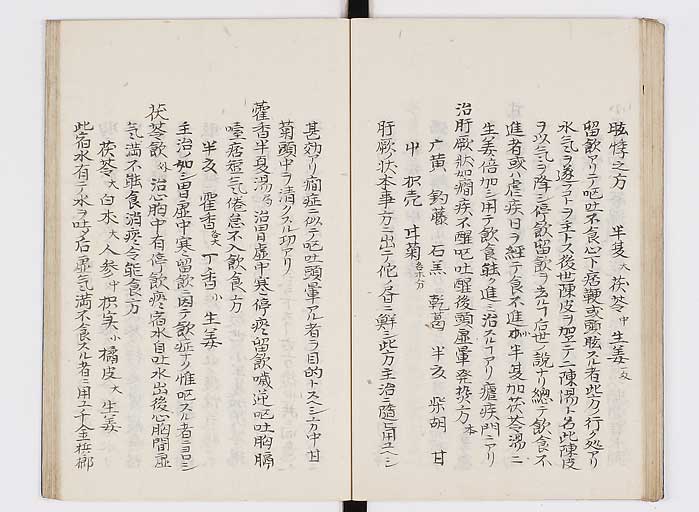 眩悸之方 半夏大 茯苓中 生姜一反
留飲アリテ嘔吐不食心下痞鞕或頭眩スル者此方ノ行処アリ
水気ヲ逐テヲ主トス後世陳皮ヲ加エテ二陳湯ト名此陳皮
ヲ以気ヲ降シ停飲留飲ヲ去ルト后世ノ説ナリ總テ飲食不
進者或ハ虐疾日ヲ経テ食不進 半夏加茯苓湯ニ
生姜倍加シ用テ飲食能ク進ミ治スルヿアリ瘧疾門ニアリ
治肝厥状如癇疾不醒嘔吐醒後頭虚暈発熱方 本
广黄 釣藤 石羔 乾葛 半亥 柴胡 甘
中 枳売 甘菊 各等分
肝厥ノ状本事方ニ出テ佗ノ香ニ鮮シ此方主治ニ隨ヒ用ユヘシ
甚効アリ癇症ニ似テ嘔吐頭暈アル者ヲ目的トスヘシ方中甘
菊頭中ヲ清クスル功アリ
藿香半夏湯 治胃虚中寒停痰留飲噦逆嘔吐胸膈
噎痞短気倦怠不入飲食方
半亥 藿香各大 丁香小 生姜
主治ノ如シ胃虚中寒ノ留飲ニ因テ飲症ナリ惟嘔スル者ニヨロシ
茯苓飲 外 治心胸中有停飲痰宿水自吐水出後心胸間虚
気満不能食消痰令能食方
茯苓大 白朮大 人参中 枳実小 橘皮大 生姜
此宿水有テ水ヲ吐タ后虚気満不食スル者ニ用ユ千金檳榔